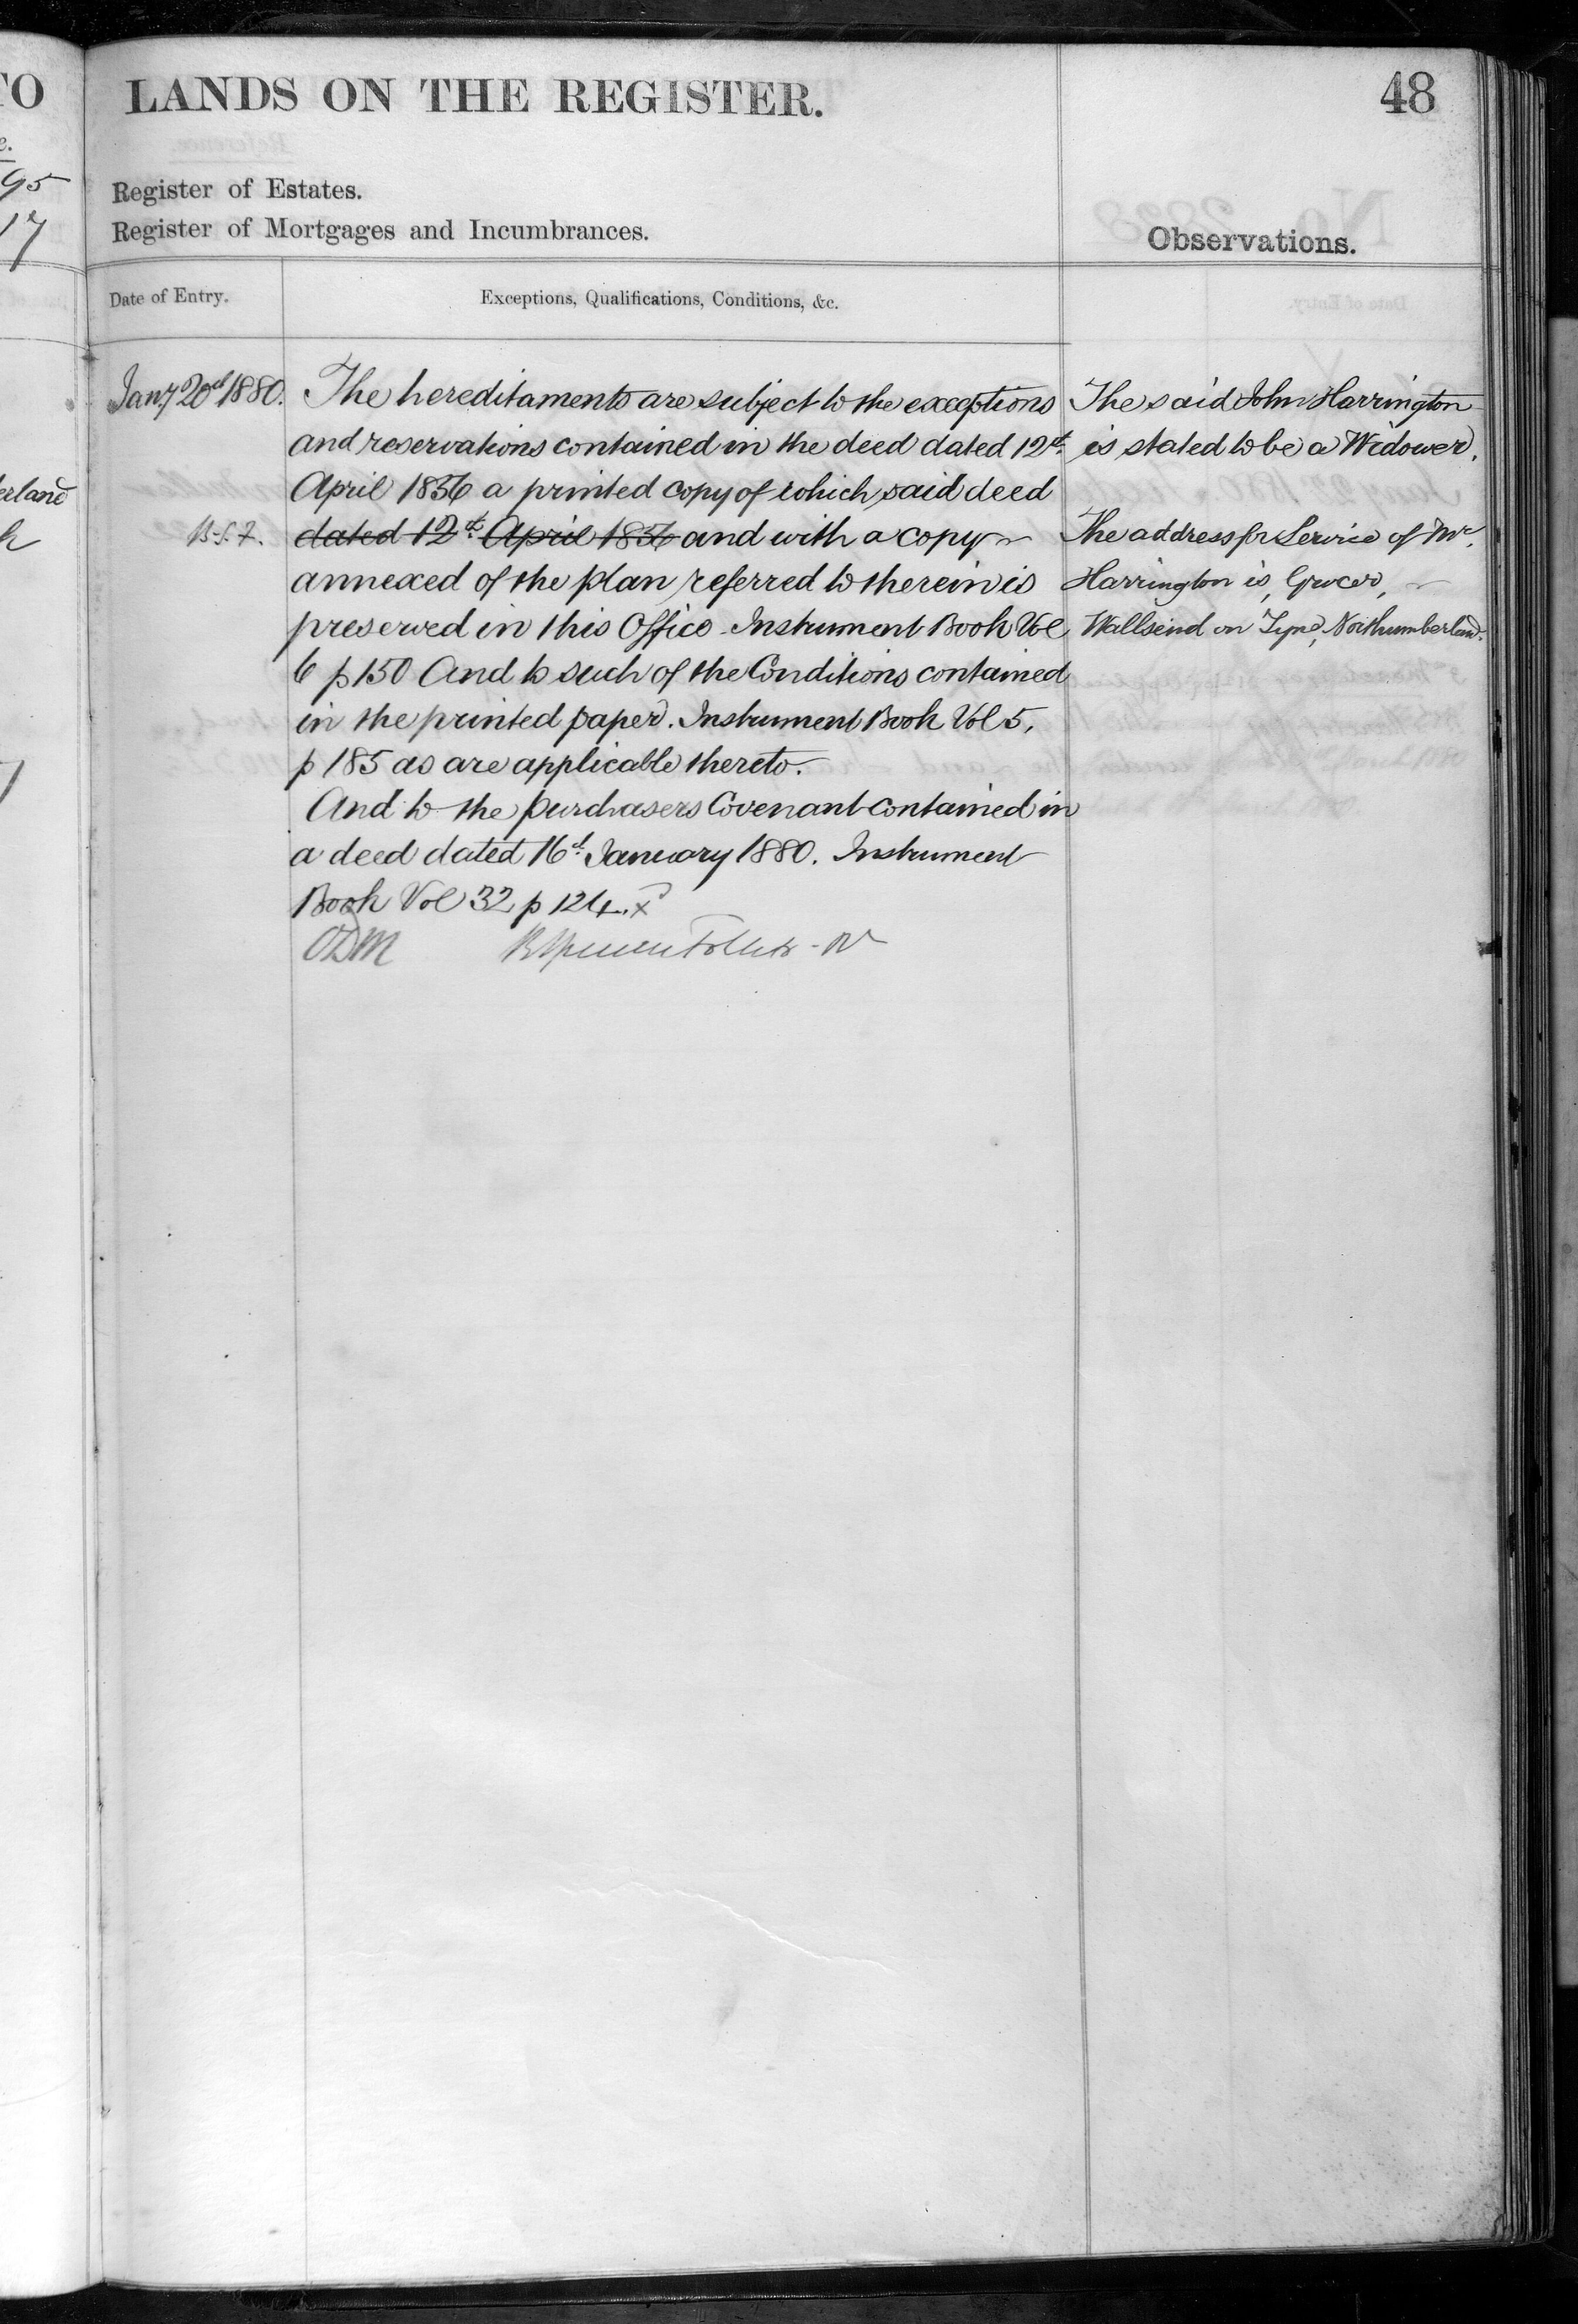 TO
LANDS ON THE REGISTER.
48
95
17
Register of Estates.
Register of Mortgages and Incumbrances.
Observations.
Date of Entry.
Exceptions, Qualifications, Conditions, &c.
Jany 20th 1880.
The hereditaments are subject to the exceptions
and reservations contained in the deed dated 12th
April 1856 a printed copy of which said deed
B.S.F.
dated 12th April 1856 and with a copy
annexed of the plan referred to therein is
preserved in this Office. Instrument Book Vol
6 p 150 And to such of the Conditions contained
in the printed paper. Instrument Book Vol 5.
p 185 as are applicable thereto.
And to the purchasers Covenant contained in
a deed dated 16th January 1880. Instrument
Book Vol 32 p 124.
ODM
The said John Harrington
is stated to be a Widower.
The address for Service of Mr.
Harrington is, Grocer,
Wallsend on Tyne, Northumberland.
erland